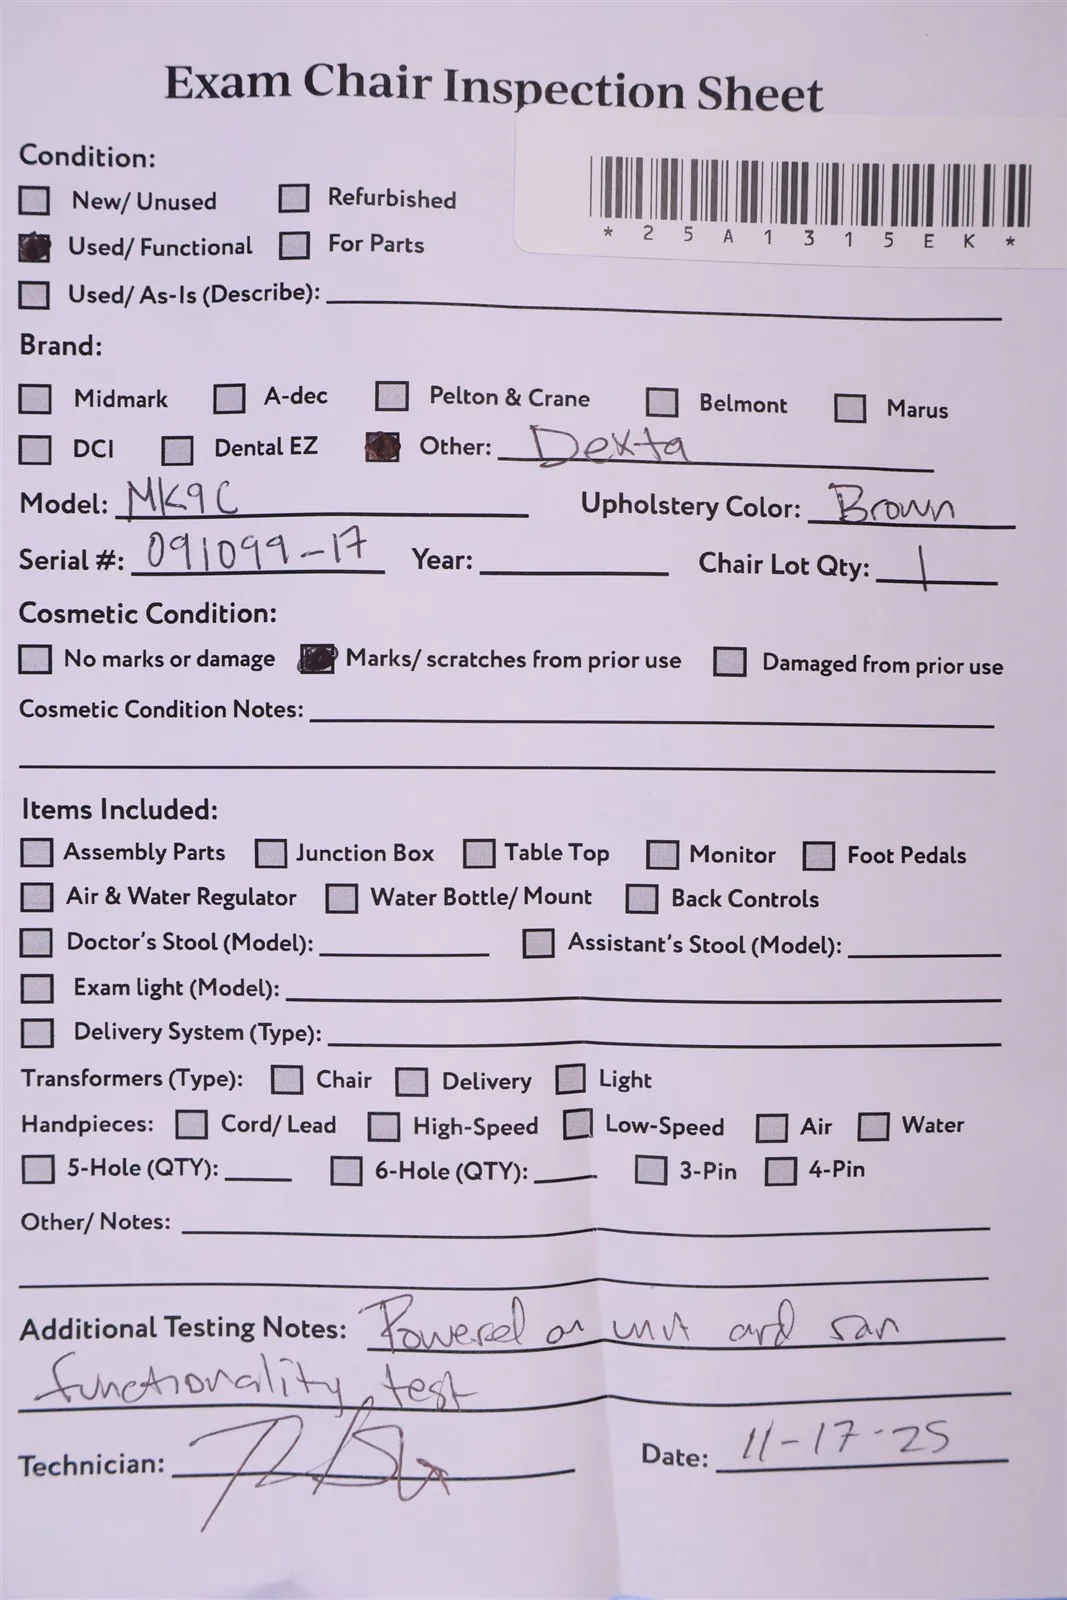 Exam Chair Inspection Sheet
*25A1315EK*
Condition:
New/ Unused Refurbished
Used/ Functional For Parts
Used/ As-Is (Describe):
Brand:
Midmark A-dec Pelton & Crane Belmont Marus
DCI Dental EZ Other: Dexta
Model: MK9C Upholstery Color: Brown
Serial #: 091099-17 Year: Chair Lot Qty: 1
Cosmetic Condition:
No marks or damage Marks/ scratches from prior use Damaged from prior use
Cosmetic Condition Notes:
Items Included:
Assembly Parts Junction Box Table Top Monitor Foot Pedals
Air & Water Regulator Water Bottle/ Mount Back Controls
Doctor's Stool (Model): Assistant's Stool (Model):
Exam light (Model):
Delivery System (Type):
Transformers (Type): Chair Delivery Light
Handpieces: Cord/ Lead High-Speed Low-Speed Air Water
5-Hole (QTY): 6-Hole (QTY): 3-Pin 4-Pin
Other/ Notes:
Additional Testing Notes: Powered on unit and ran
functionality test
Technician: Date: 11-17-25